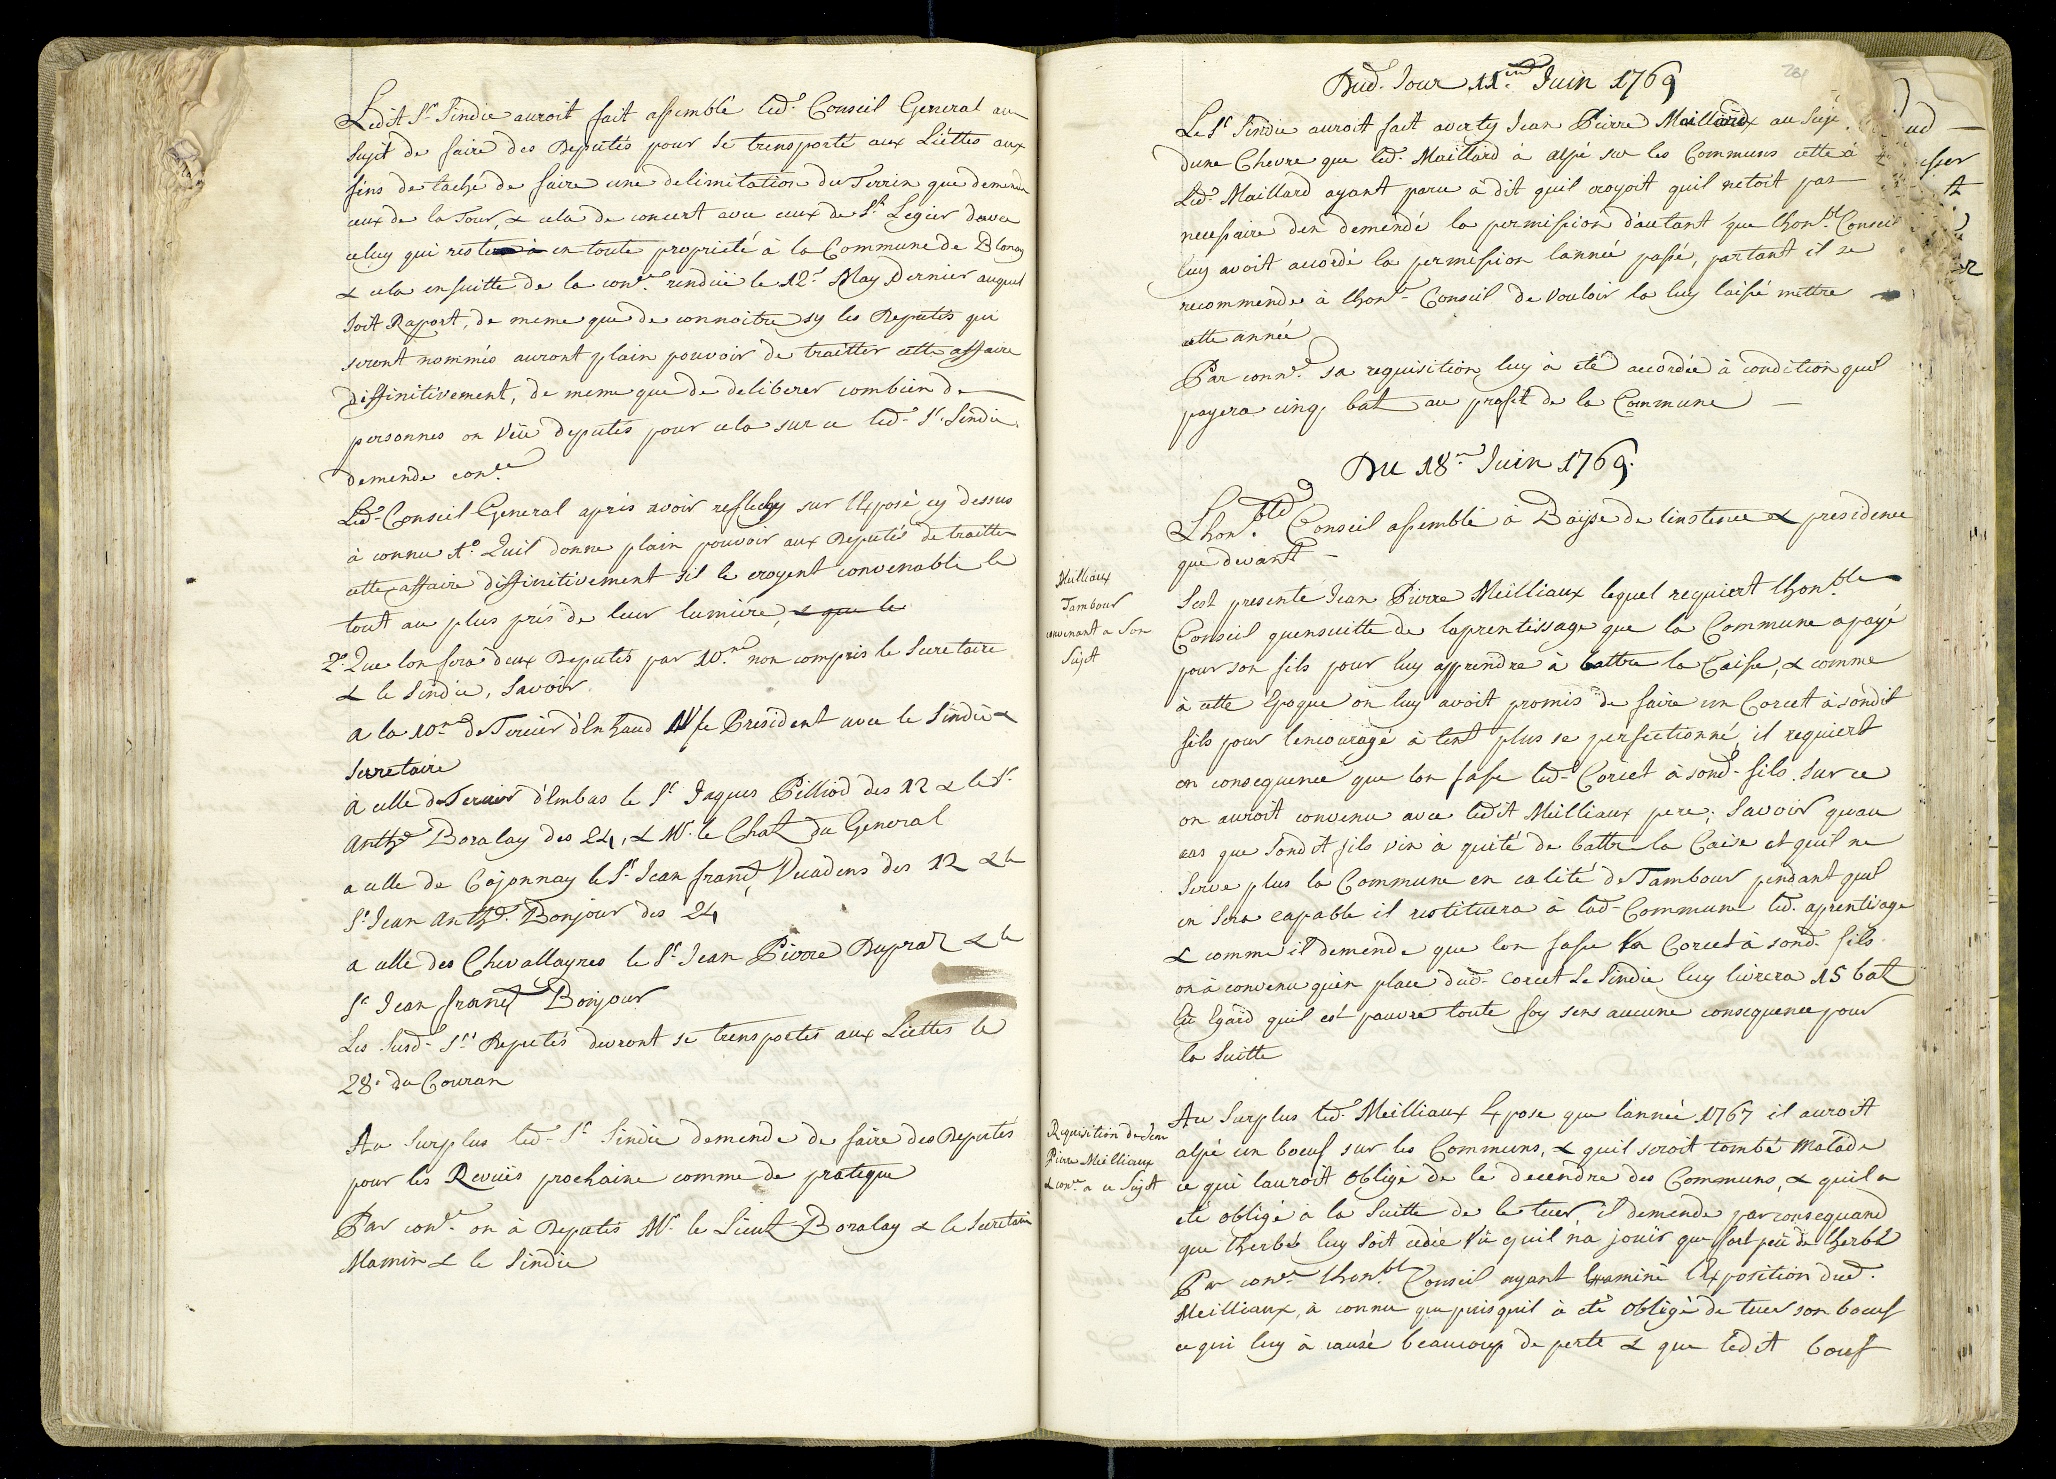 Ledit Sr. Sindic auroit fait assemblé led. Conseil General au
Sujet de faire des Deputés pour se trensporté aux Liéttes aux
fins de taché de faire une delimitation du Terrin que demende
ceux de la Tour, & cela de concert avec ceux de St. Legier davec
celuy qui restera en toute proprieté à la Commune de Blonay
& cela ensuitte de la conce. rendüe le 12e. May Dernier auquel
soit Raport, de meme que de connoitre sy les Deputés qui
seront nommés auront plain pouvoir de traitter cette affaire
diffinitivement, de meme que de deliberer combien de
personnes on veu deputés pour cela sur ce led. Sr. Sindic
demende conce.
Led. Conseil General apris avoir reflechy sur l'Exposé cy dessus
à connu 1o. Quil donne plain pouvoir aux Deputés de traitter
cette affaire diffinitivement sil le croyent convenable le
tout au plus près de leur lumiere, & que le
2o. Que lon fera deux Deputés par 10ne. non compris le Secretaire
& le Sindic, Savoir
a la 10ne. de Tercier d'Enhaud Mr. le President avec le Sindic &
Secretaire
à celle de Tercier d'Embas le Sr. Jaques Pilliod des 12 & le Sr.
Anthe. Boralay des 24, & Mr. le Chat. du General
a celle de Cojonnay le Sr. Jean franct. Ducadens des 12 & le
Sr. Jean Anthe. Bonjour des 24
a celle des Chevallayres le Sr. Jean Pierre Dupraz & le
Sr. Jean franct. Bonjour
Les Susd. Srs. Deputés devront se trensportés aux Liettes le
28e. du Couran
Au Surplus led. Sr. Sindic demende de faire des Deputés
pour les Revuës prochaine comme de pratique
Par conce. on à Deputés Mr. le Lieut. Boralay & le Secretaire
Mamin & le Sindic
Dud. Jour 11eme. Juin 1769
Le Sr. Sindic auroit fait averty Jean Pierre Maillard au Suje
dune Chevre que led. Maillard à alpé sur les Communs cette à
Led. Maillard ayant paru à dit quil croyoit quil netoit pas
necessaire den demendé la permission d'autant que lhonble. Conseil
luy avoit accordé la permission lannée passé, partant il se
recommende à lhonle. Conseil de vouloir la luy laissé mettre
cette année
Par connce. sa requisition luy à eté accordée à condition quil
payera cinq bat. au profit de la Commune
Du 18e. Juin 1769.
Lhonble. Conseil assemblé à Baisse de linstence & presidence
que devant
Meilliaux
Tambour
convenant a Son
Sujet
Sest presenté Jean Pierre Meilliaux lequel requiert lhonble.
Conseil quensuitte de laprentissage que la Commune a payé
pour son fils pour luy apprendre à battre la Caisse, & comme
à cette Epoque on luy avoit promis de faire un Corcet à sondit
fils pour lencouragé à tent plus se perfectionné il requiert
en consequence que lon fasse led. Corcet à sond. fils sur ce
on auroit convenu avec ledit Meilliaux pere; Savoir quau
cas que Sondit fils vin à quité de battre la Caise et quil ne
Serve plus la Commune en calité de Tambour pendant quil
en Sera capable il restituera à lad. Commune led. aprentisage
& comme il demende que lon fasse un Corcet à sond. fils
on à convenu quen place dud. Corcet Le Sindic luy livrera 15 bat
Eu Egard quil est pauvre toute foy sens aucune consequence pour
la Suitte
Requisition de Jean
Pierre Meilliaux
& conce. a ce Sujet
Au Surplus led. Meilliaux Expose que lannée 1767 il auroit
alpé un boeuf sur les Communs, & quil seroit tombé Malade
ce qui lauroit obligé de le decendre des Communs, & quil a
eté obligé à la Suitte de le tuer il demende parconsequand
que l'herbé luy soit cedée vû quil n'à jouir que fort peu de lherbé
Par conce. lhonble. Conseil ayant Examiné l'Exposition dud.
Meilliaux, à connu que puisquil à eté obligé de tuer son boeuf
ce qui luy à causé beaucoup de perte & que ledit boeuf